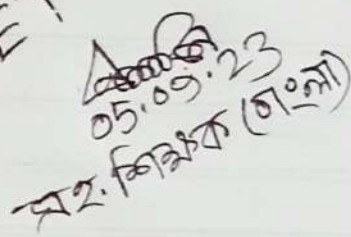 05.09.23
সহ. শিক্ষক (বাংলা)